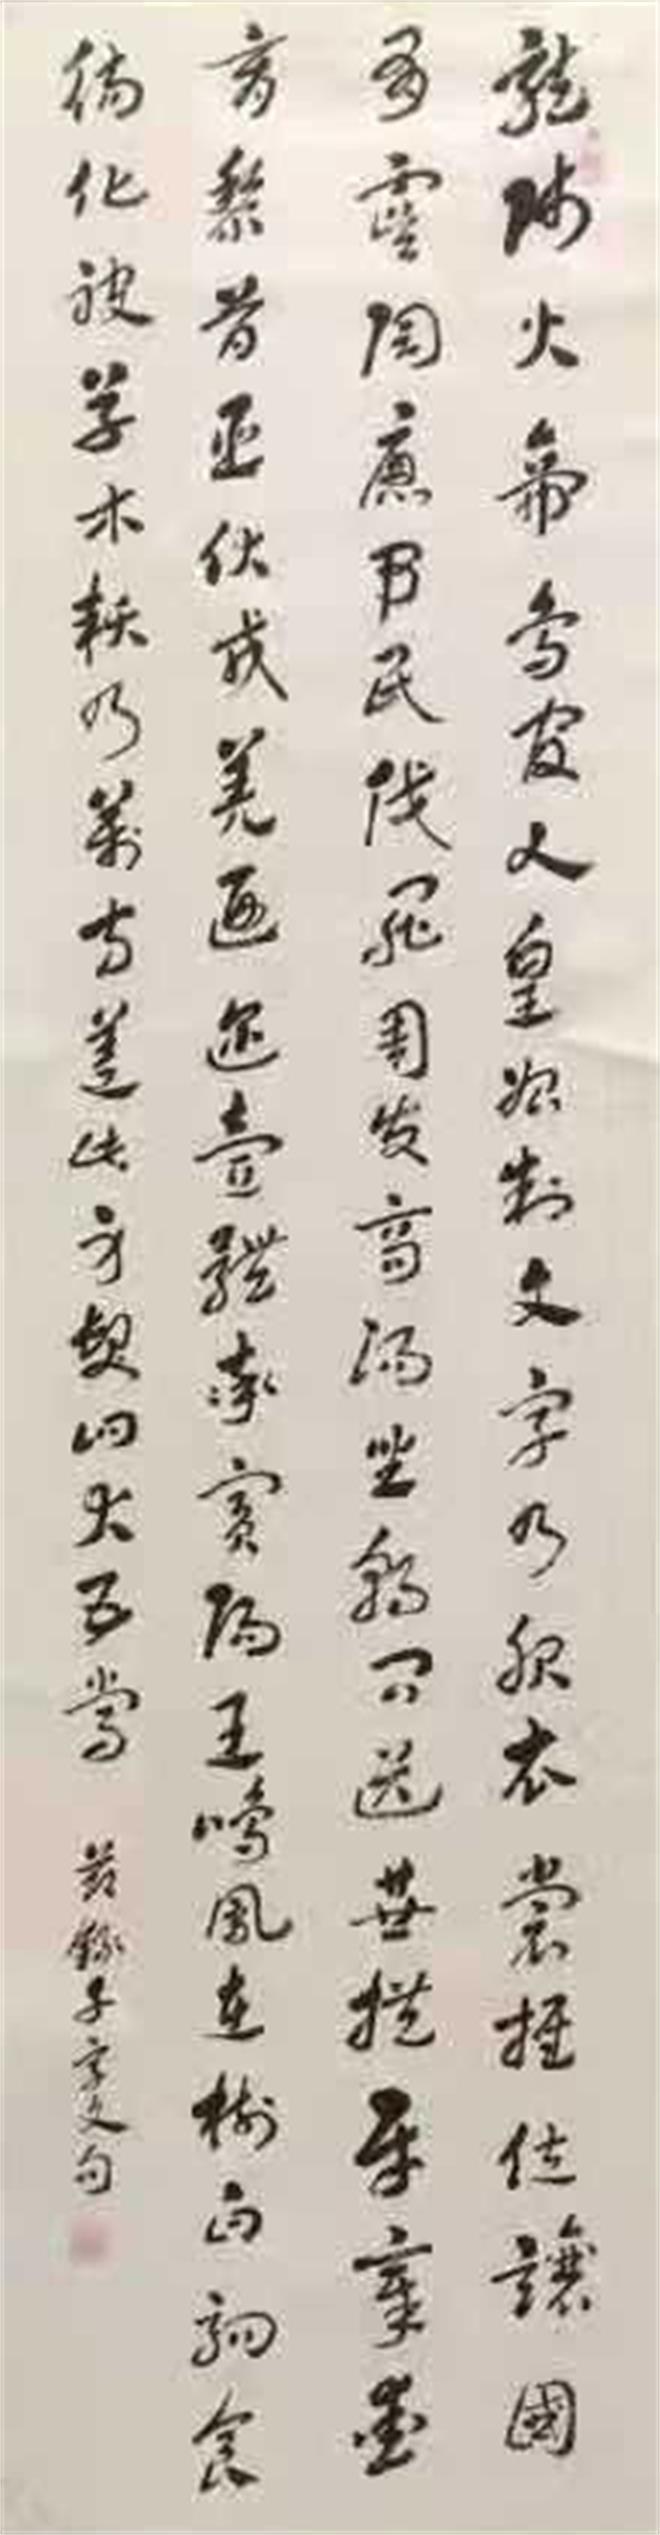 龍師火帝鳥官人皇始制文字乃服衣裳推位讓國
有虞陶唐弔民伐罪周發商湯坐朝問道垂拱平章愛
育黎首臣伏戎羌遐邇壹體率賓歸王鳴鳳在樹白駒食
場化被草木賴及萬方蓋此身髮四大五常
節錄千字文句